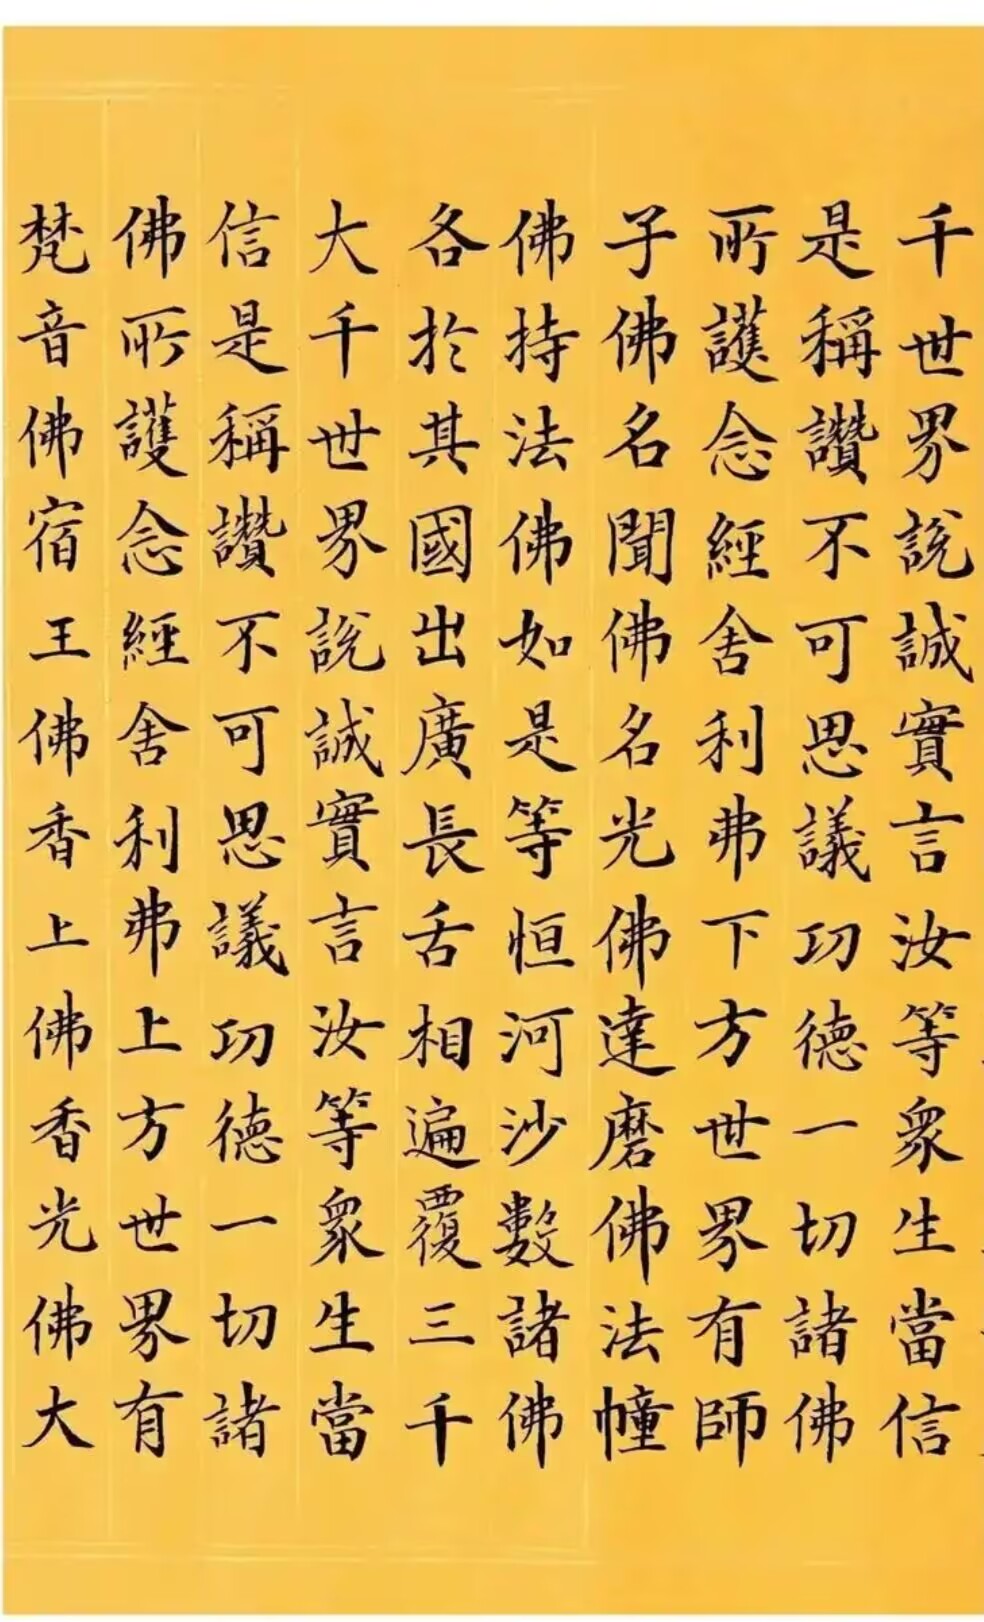 千世界說誠實言汝等眾生當信
是稱讚不可思議功德一切諸佛
所護念經舍利弗下方世界有師
子佛名聞佛名光佛達磨佛法幢
佛持法佛如是等恒河沙數諸佛
各於其國出廣長舌相遍覆三千
大千世界說誠實言汝等眾生當
信是稱讚不可思議功德一切諸
佛所護念經舍利弗上方世界有
梵音佛宿王佛香上佛香光佛大